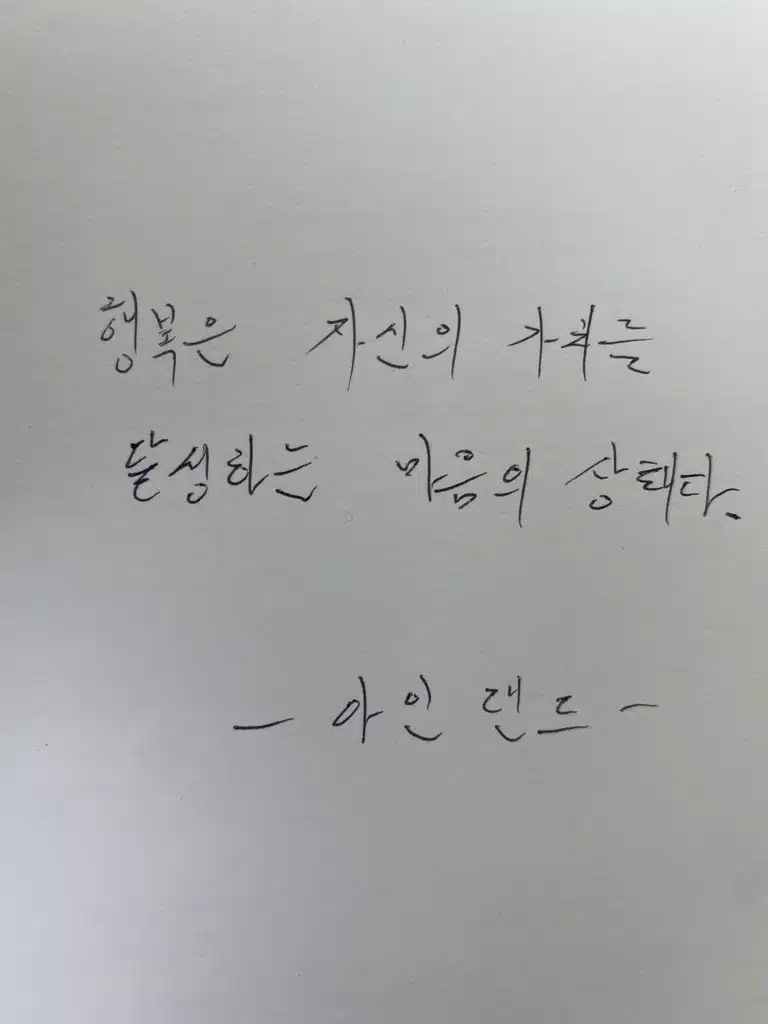 행복은 자신의 가치를
달성하는 마음의 상태다.
- 아인 랜드 -